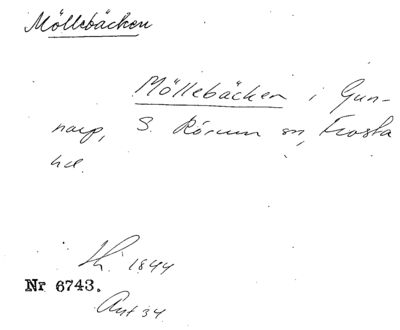 Möllebäcken
Möllebäcken i Gun-
narp, S. Rörum sn, Frosta
hd.
1844
Nr 6743.
34